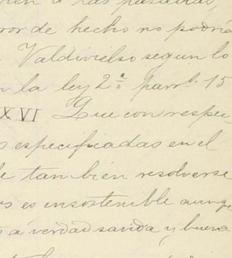 ror de hecho no podría
Valdivielso segun lo
n la ley 2ª parr.t 15
XXVI Que con respec
s especificadas en el
le tambien resolverse
es es insostenible aunqe
s a verdad savida y buena